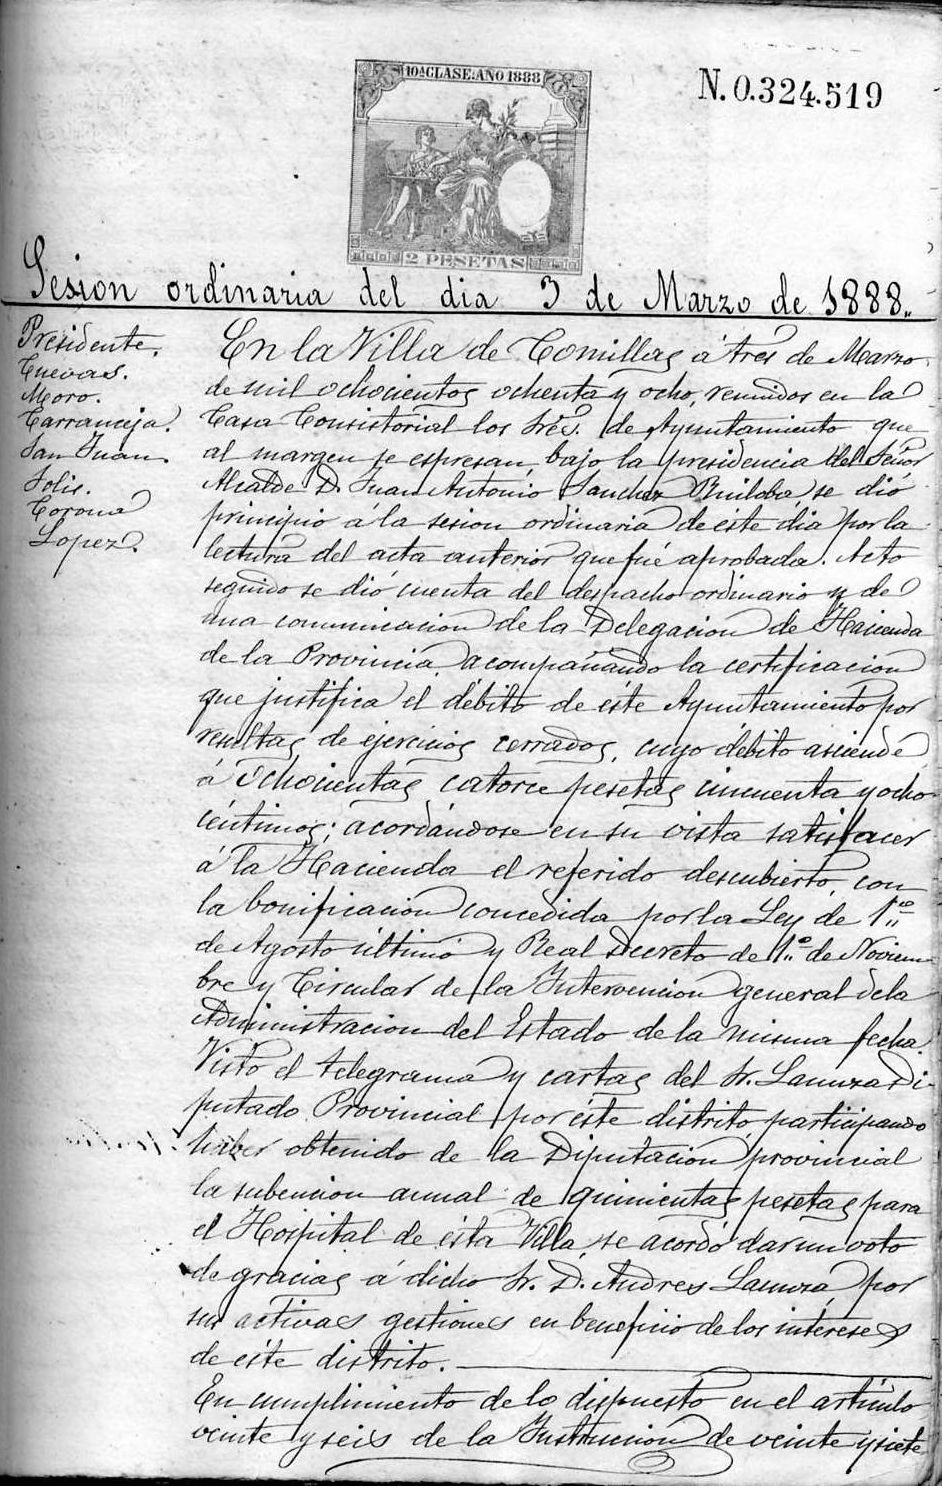 10ª CLASE: AÑO 1888
N. 0.324.519
2 PESETAS
Sesion ordinaria del dia 3 de Marzo de 1888.
Presidente.
Cuevas.
Moro.
Carranceja.
San Juan.
Solis.
Corona
Lopez.
En la Villa de Comillas á tres de Marzo
de mil ochocientos ochenta y ocho, reunidos en la
Casa Consistorial los Sres. de Ayuntamiento que
al margen se espresan, bajo la presidencia del Señor
Alcalde D. Juan Antonio Sanchez Ruiloba se dió
principio á la sesion ordinaria de éste dia por la
lectura del acta anterior que fué aprobada. Acto
seguido se dió cuenta del despacho ordinario y de
una comunicacion de la Delegacion de Hacienda
de la Provincia acompañando la certificacion
que justifica el débito de éste Ayuntamiento por
resultas de ejercicios cerrados, cuyo débito asciende
á ochocientas catorce pesetas cincuenta y ocho
céntimos; acordándose en su vista satisfacer
á la Hacienda el referido descubierto, con
la bonificacion concedida por la Ley de 1º
de Agosto último y Real decreto de 1º de Noviem-
bre y Circular de la Intervencion general dela
Administracion del Estado de la misma fecha.
Visto el telegrama y cartas del Sr. Lanuza Di-
putado Provincial por éste distrito participando
haber obtenido de la Diputacion provincial
la subencion anual de quinientas pesetas para
el Hospital de ésta Villa, se acordó dar un voto
de gracias á dicho Sr. D. Andres Lanuza por
sus activas gestiones en beneficio de los intereses
de éste distrito.
En cumplimiento de lo dispuesto en el artículo
veinte y seis de la Instruccion de veinte y siete